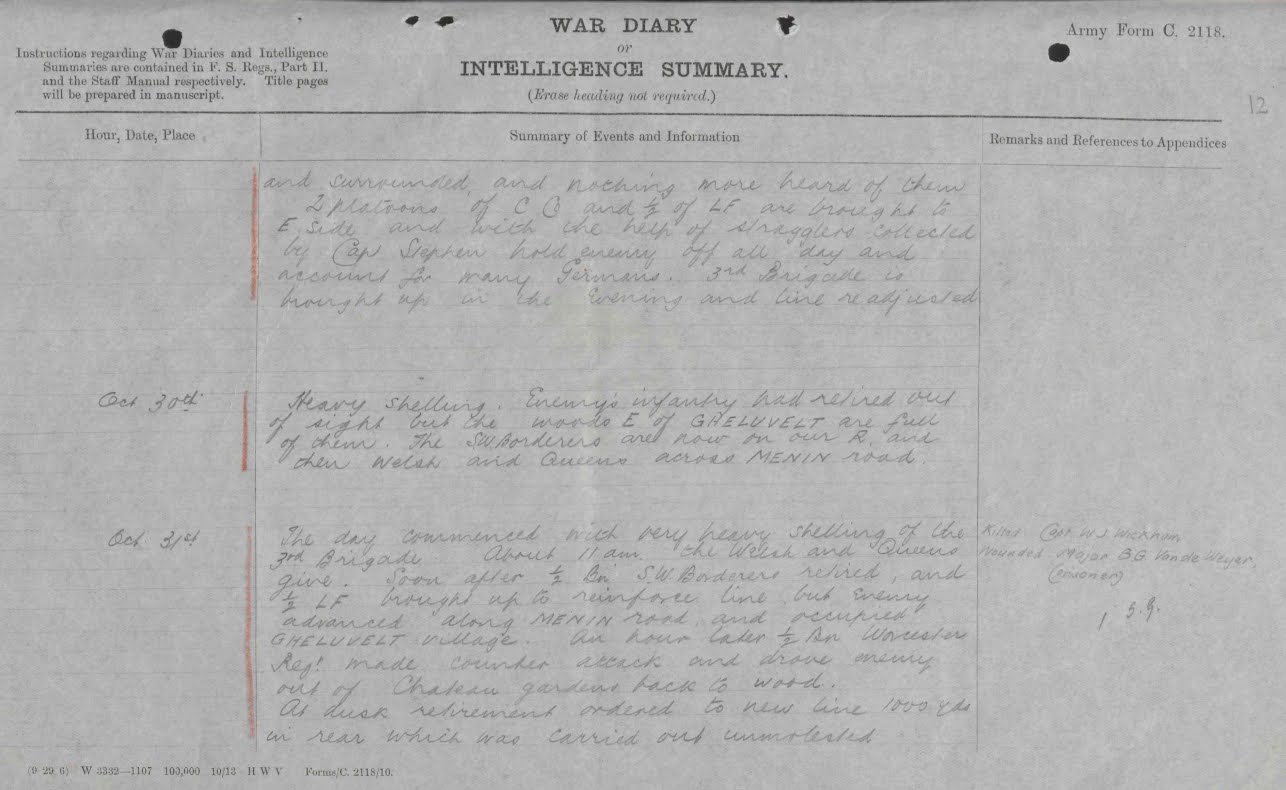 WAR DIARY
or
INTELLIGENCE SUMMARY.
(Erase heading not required.)
Army Form C. 2118.
Instructions regarding War Diaries and Intelligence
Summaries are contained in F. S. Regs., Part II.
and the Staff Manual respectively. Title pages
will be prepared in manuscript.
12
Hour, Date, Place
Summary of Events and Information
Remarks and References to Appendices
and surrounded, and nothing more heard of them
2 platoons of C Co and ½ of LF are brought to
E side and with the help of stragglers collected
by Capt Stephen hold enemy off all day and
account for many Germans. 3rd Brigade is
brought up in the Evening and line readjusted
Oct 30th
Heavy shelling. Enemy's infantry had retired out
of sight but the woods E of GHELUVELT are full
of them. The SW.Borderers are now on our R. and
then Welsh and Queens across MENIN road.
Oct 31st
The day commenced with very heavy shelling of the
3rd Brigade About 11 am. the Welsh and Queens
give. Soon after ½ Bn S.W.Borderers retired, and
½ LF brought up to reinforce line but Enemy
advanced along MENIN road, and occupied
GHELUVELT village. An hour later ½ Bn Worcester
Regt made counter attack and drove enemy
out of Chateau gardens back to wood.
At dusk retirement ordered to new line 1000 yds
in rear which was carried out unmolested
Killed Capt W.J. Wickham
Wounded Major B.G. Van de Weyer,
(prisoner)
(9 29 6) W 3332—1107 100,000 10/13 H W V Forms/C. 2118/10.